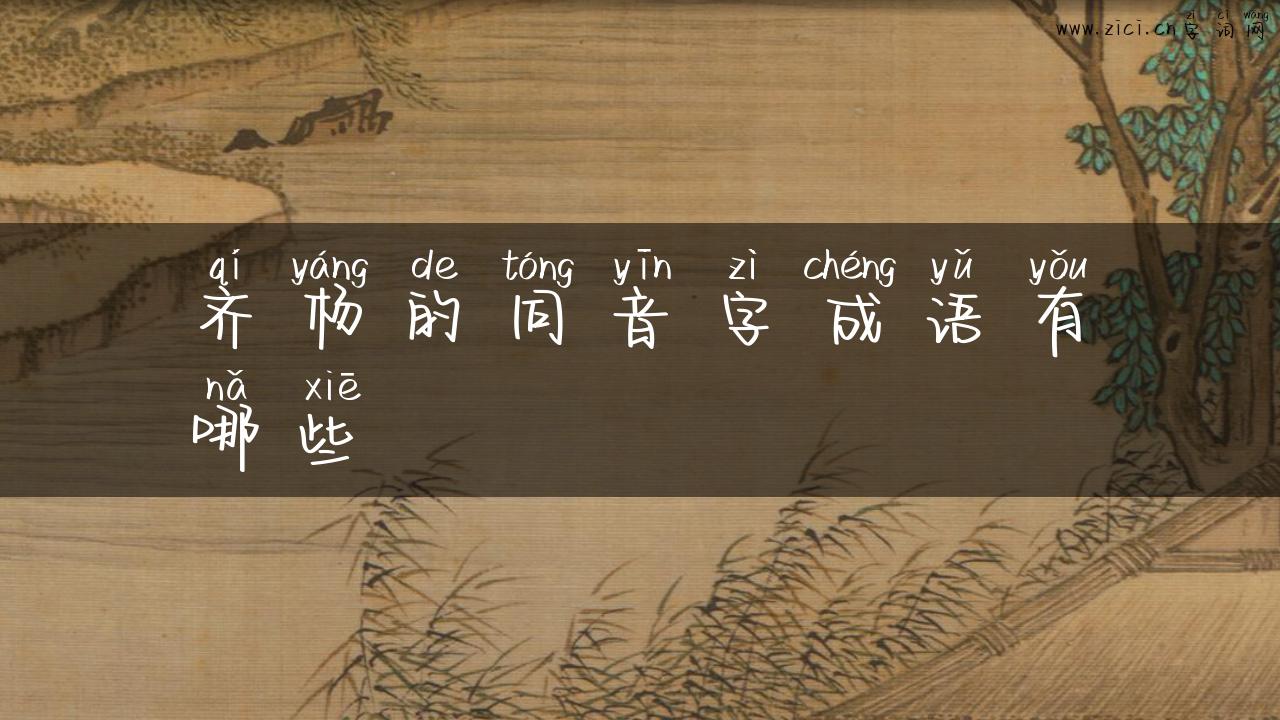 zì cí wǎng
www.zici.cn字词网
qí yáng de tóng yīn zì chéng yǔ yǒu
齐杨的同音字成语有
nǎ xiē
哪些